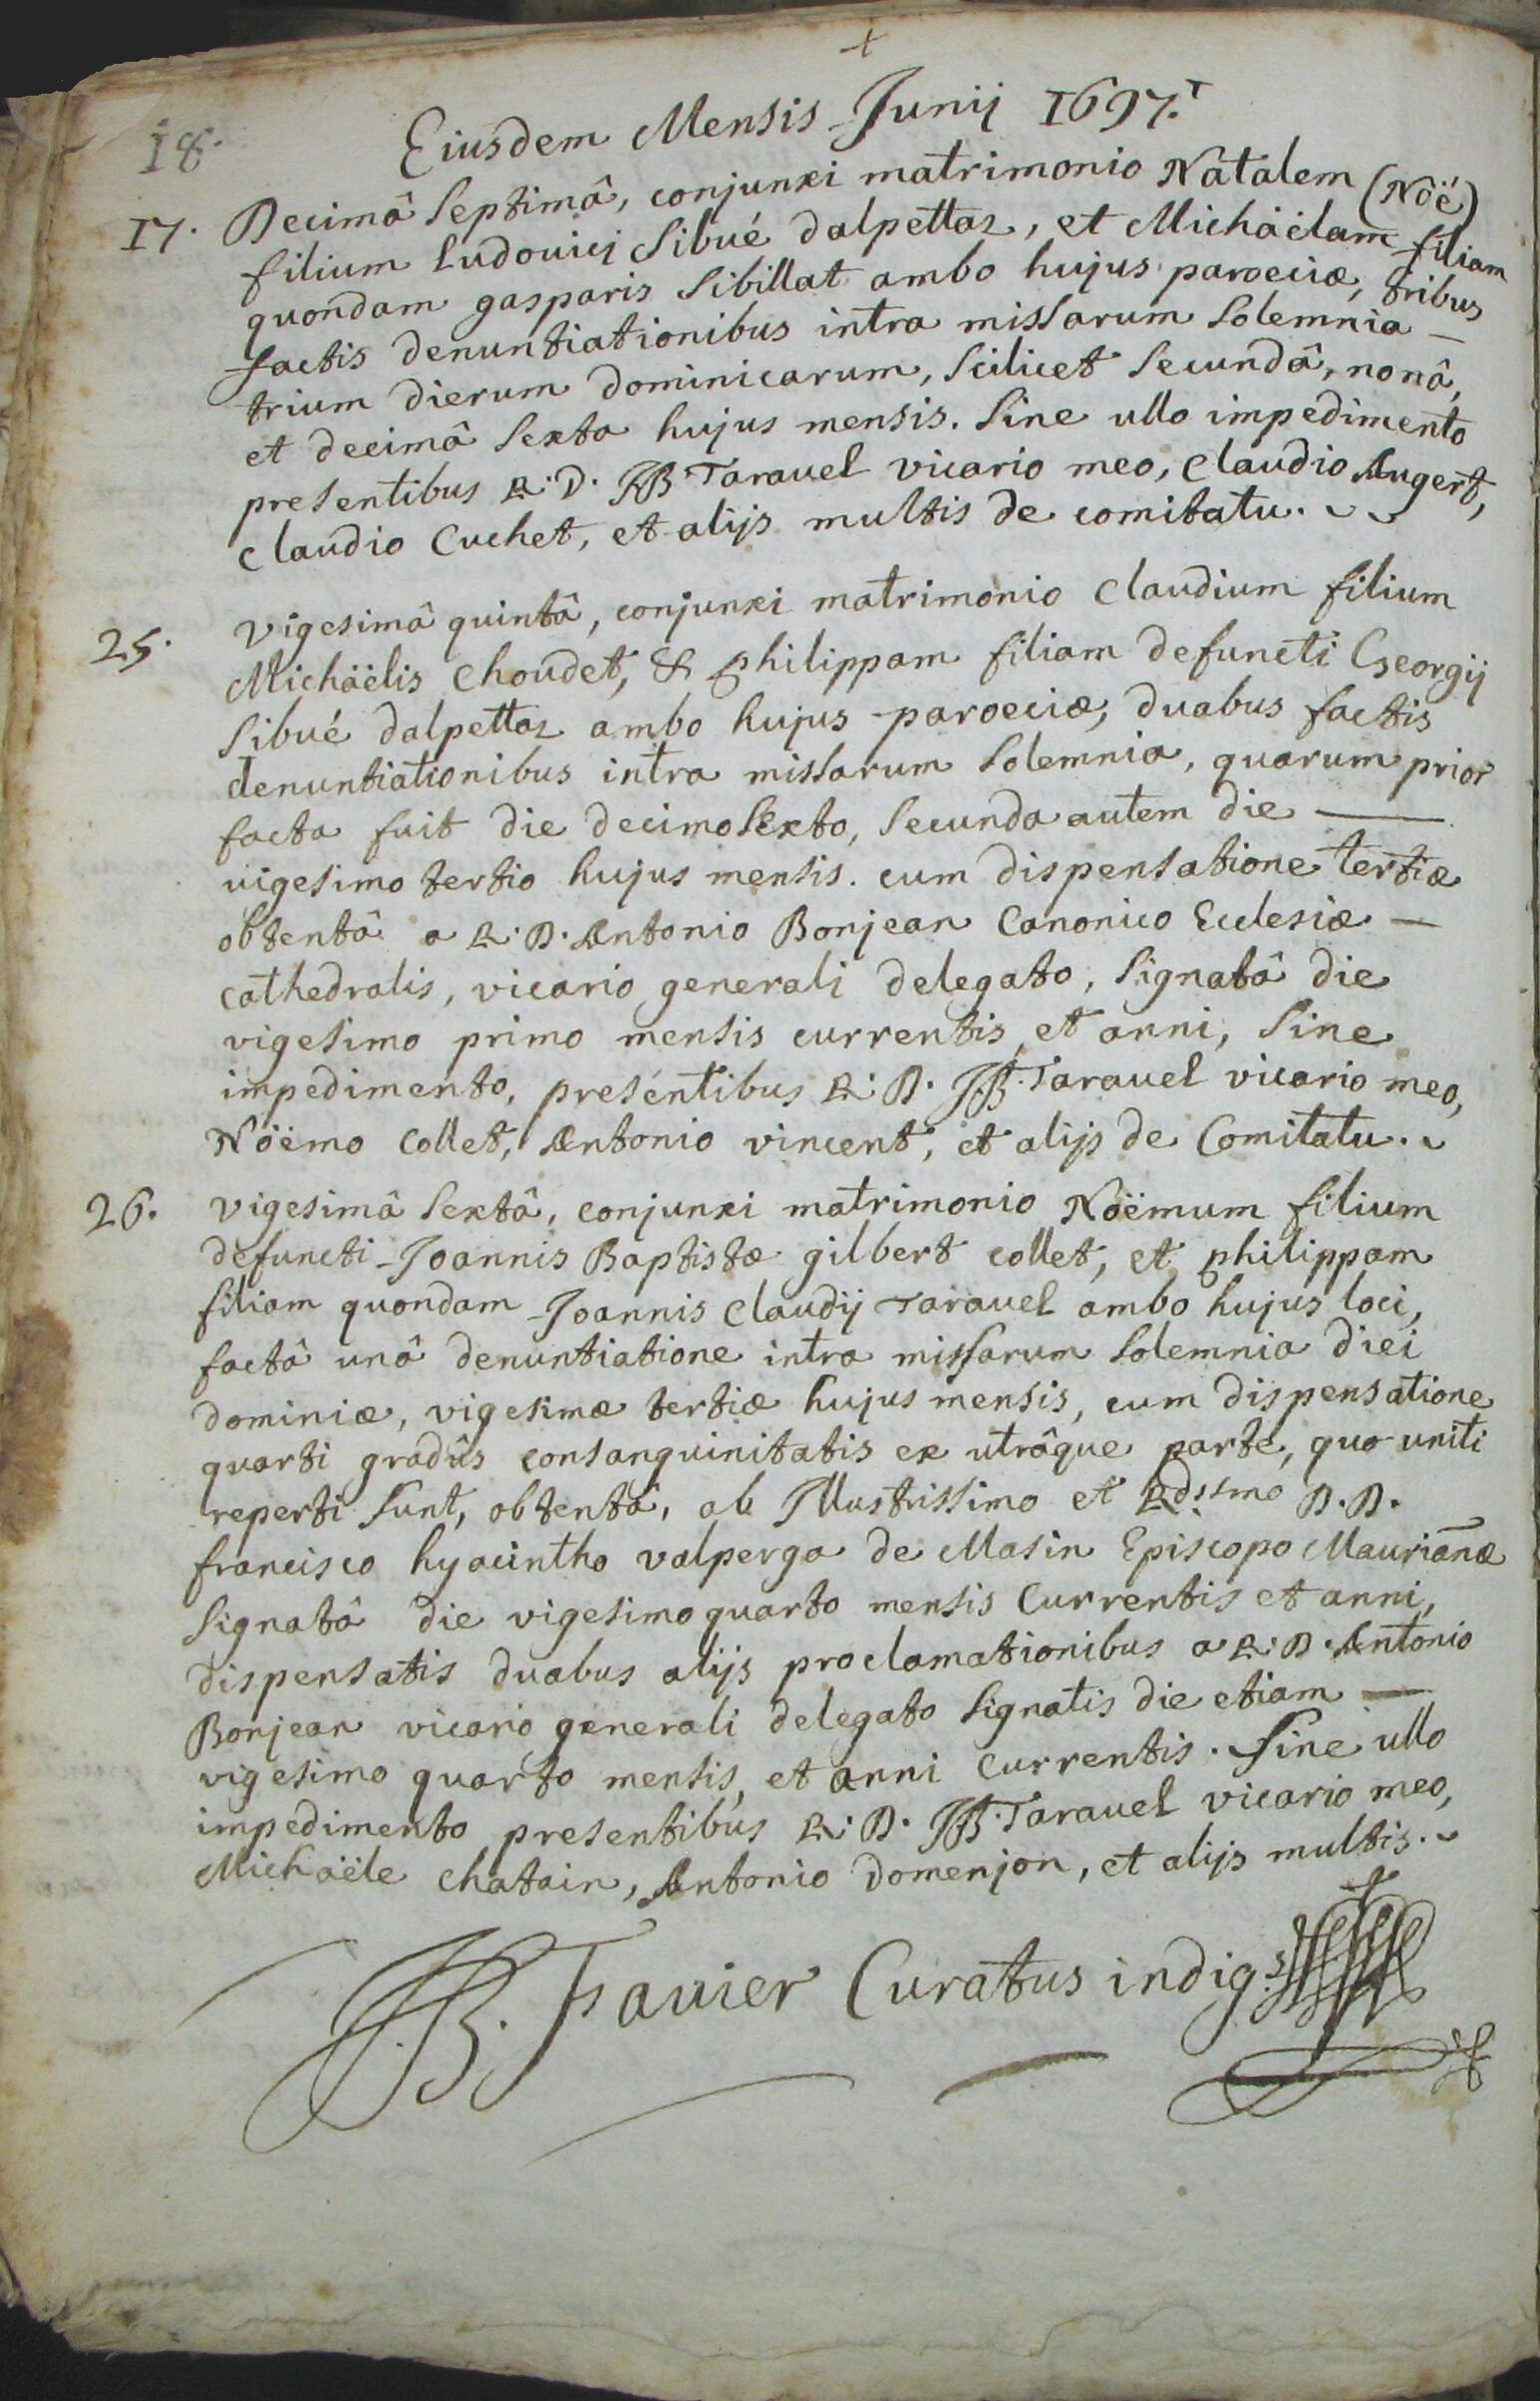 +
18.
Eiusdem Mensis Junij 1697.
17. Decimâ Septimâ, conjunxi matrimonio Natalem (Nöé)
filium Ludouici Sibué dalpettaz, et Michäëlam filiam
quondam gasparis Sibillat ambo hujus parœciæ, tribus
factis denuntiationibus intra missarum Solemnia —
trium dierum dominicarum, Scilicet Secundâ, nonâ,
et decimâ Sexta hujus mensis. Sine ullo impedimento
presentibus R. D. JB Tarauel vicario meo, claudio Augert,
claudio Cuchet, et alijs multis de comitatu.
25. vigesimâ quintâ, conjunxi matrimonio claudium filium
Michäëlis choudet, & philippam filiam defuncti Georgij
Sibué dalpettaz ambo hujus parœciæ, duabus factis
denuntiationibus intra missarum Solemnia, quarum prior
facta fuit die decimo Sexto, Secunda autem die —
uigesimo tertio hujus mensis. cum dispensatione tertiæ
obtentâ a R. D. Antonio Bonjean Canonico Ecclesiæ —
cathedralis, vicario generali delegato, Signatâ die
vigesimo primo mensis currentis, et anni, Sine
impedimento, presentibus R. D. JB Tarauel vicario meo,
Nöëmo Collet, Antonio vincent, et alijs de Comitatu.
26. vigesimâ Sextâ, conjunxi matrimonio Nöëmum filium
defuncti Joannis Baptistæ gilbert collet, et philippam
filiam quondam Joannis Claudij Tarauel ambo hujus loci,
factâ unâ denuntiatione intra missarum Solemnia diei
dominiæ, vigesimæ tertiæ hujus mensis, cum dispensatione
quarti gradûs consanguinitatis ex utrâque parte, quo uniti
reperti Sunt, obtentâ, ab Illustrissimo et Rdssmo D. D.
francisco hyacintho valperga de Masin Episcopo Maurianæ
Signatâ die vigesimo quarto mensis Currentis et anni,
dispensatis duabus alijs proclamationibus a R. D. Antonio
Bonjean vicario generali delegato Signatis die etiam —
vigesimo quarto mensis, et anni Currentis. Sine ullo
impedimento presentibus R. D. JB Tarauel vicario meo,
Michäële chatain, Antonio domenjon, et alijs multis.
JB. Favier Curatus indig.s